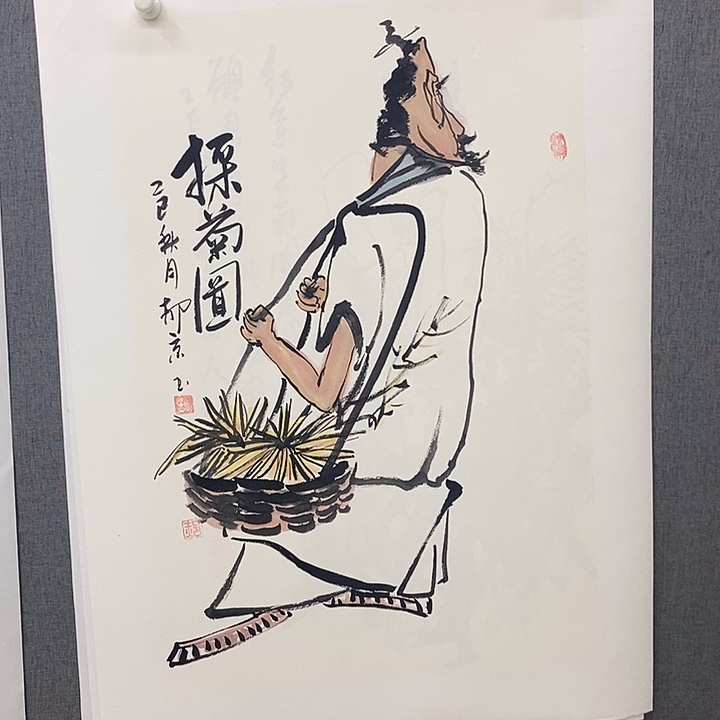 採菊圖
乙巳秋月柳京玉